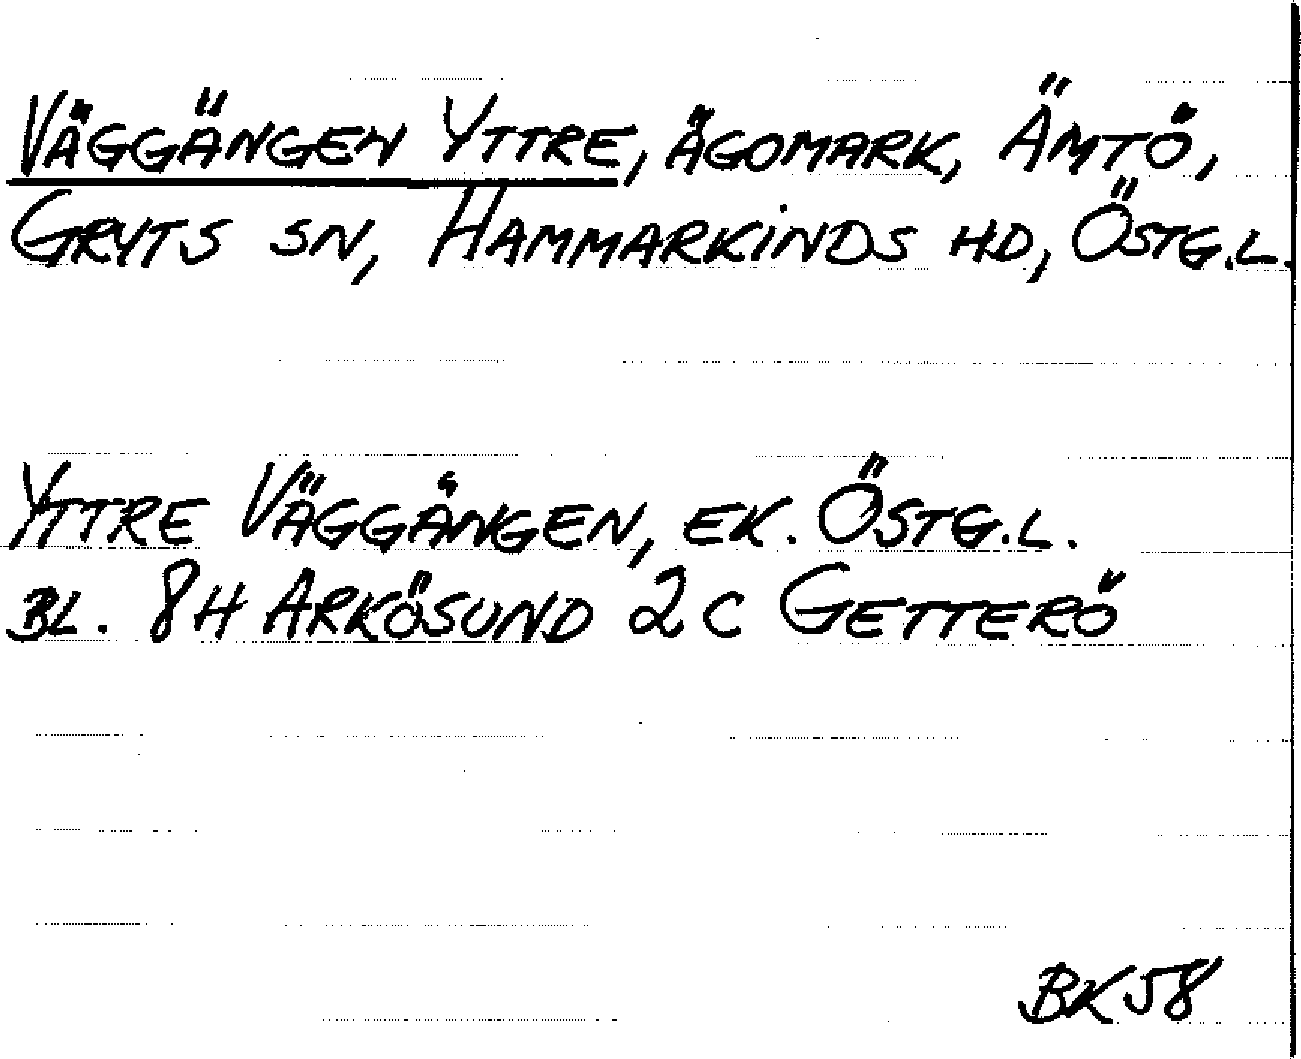 VÄGGÄNGEN YTTRE, ÄGOMARK, ÄMTÖ,
GRYTS SN, HAMMARKINDS HD, ÖSTG.L.
YTTRE VÄGGÅNGEN, EK. ÖSTG.L.
BL. 8H ARKÖSUND 2C GETTERÖ
BK58